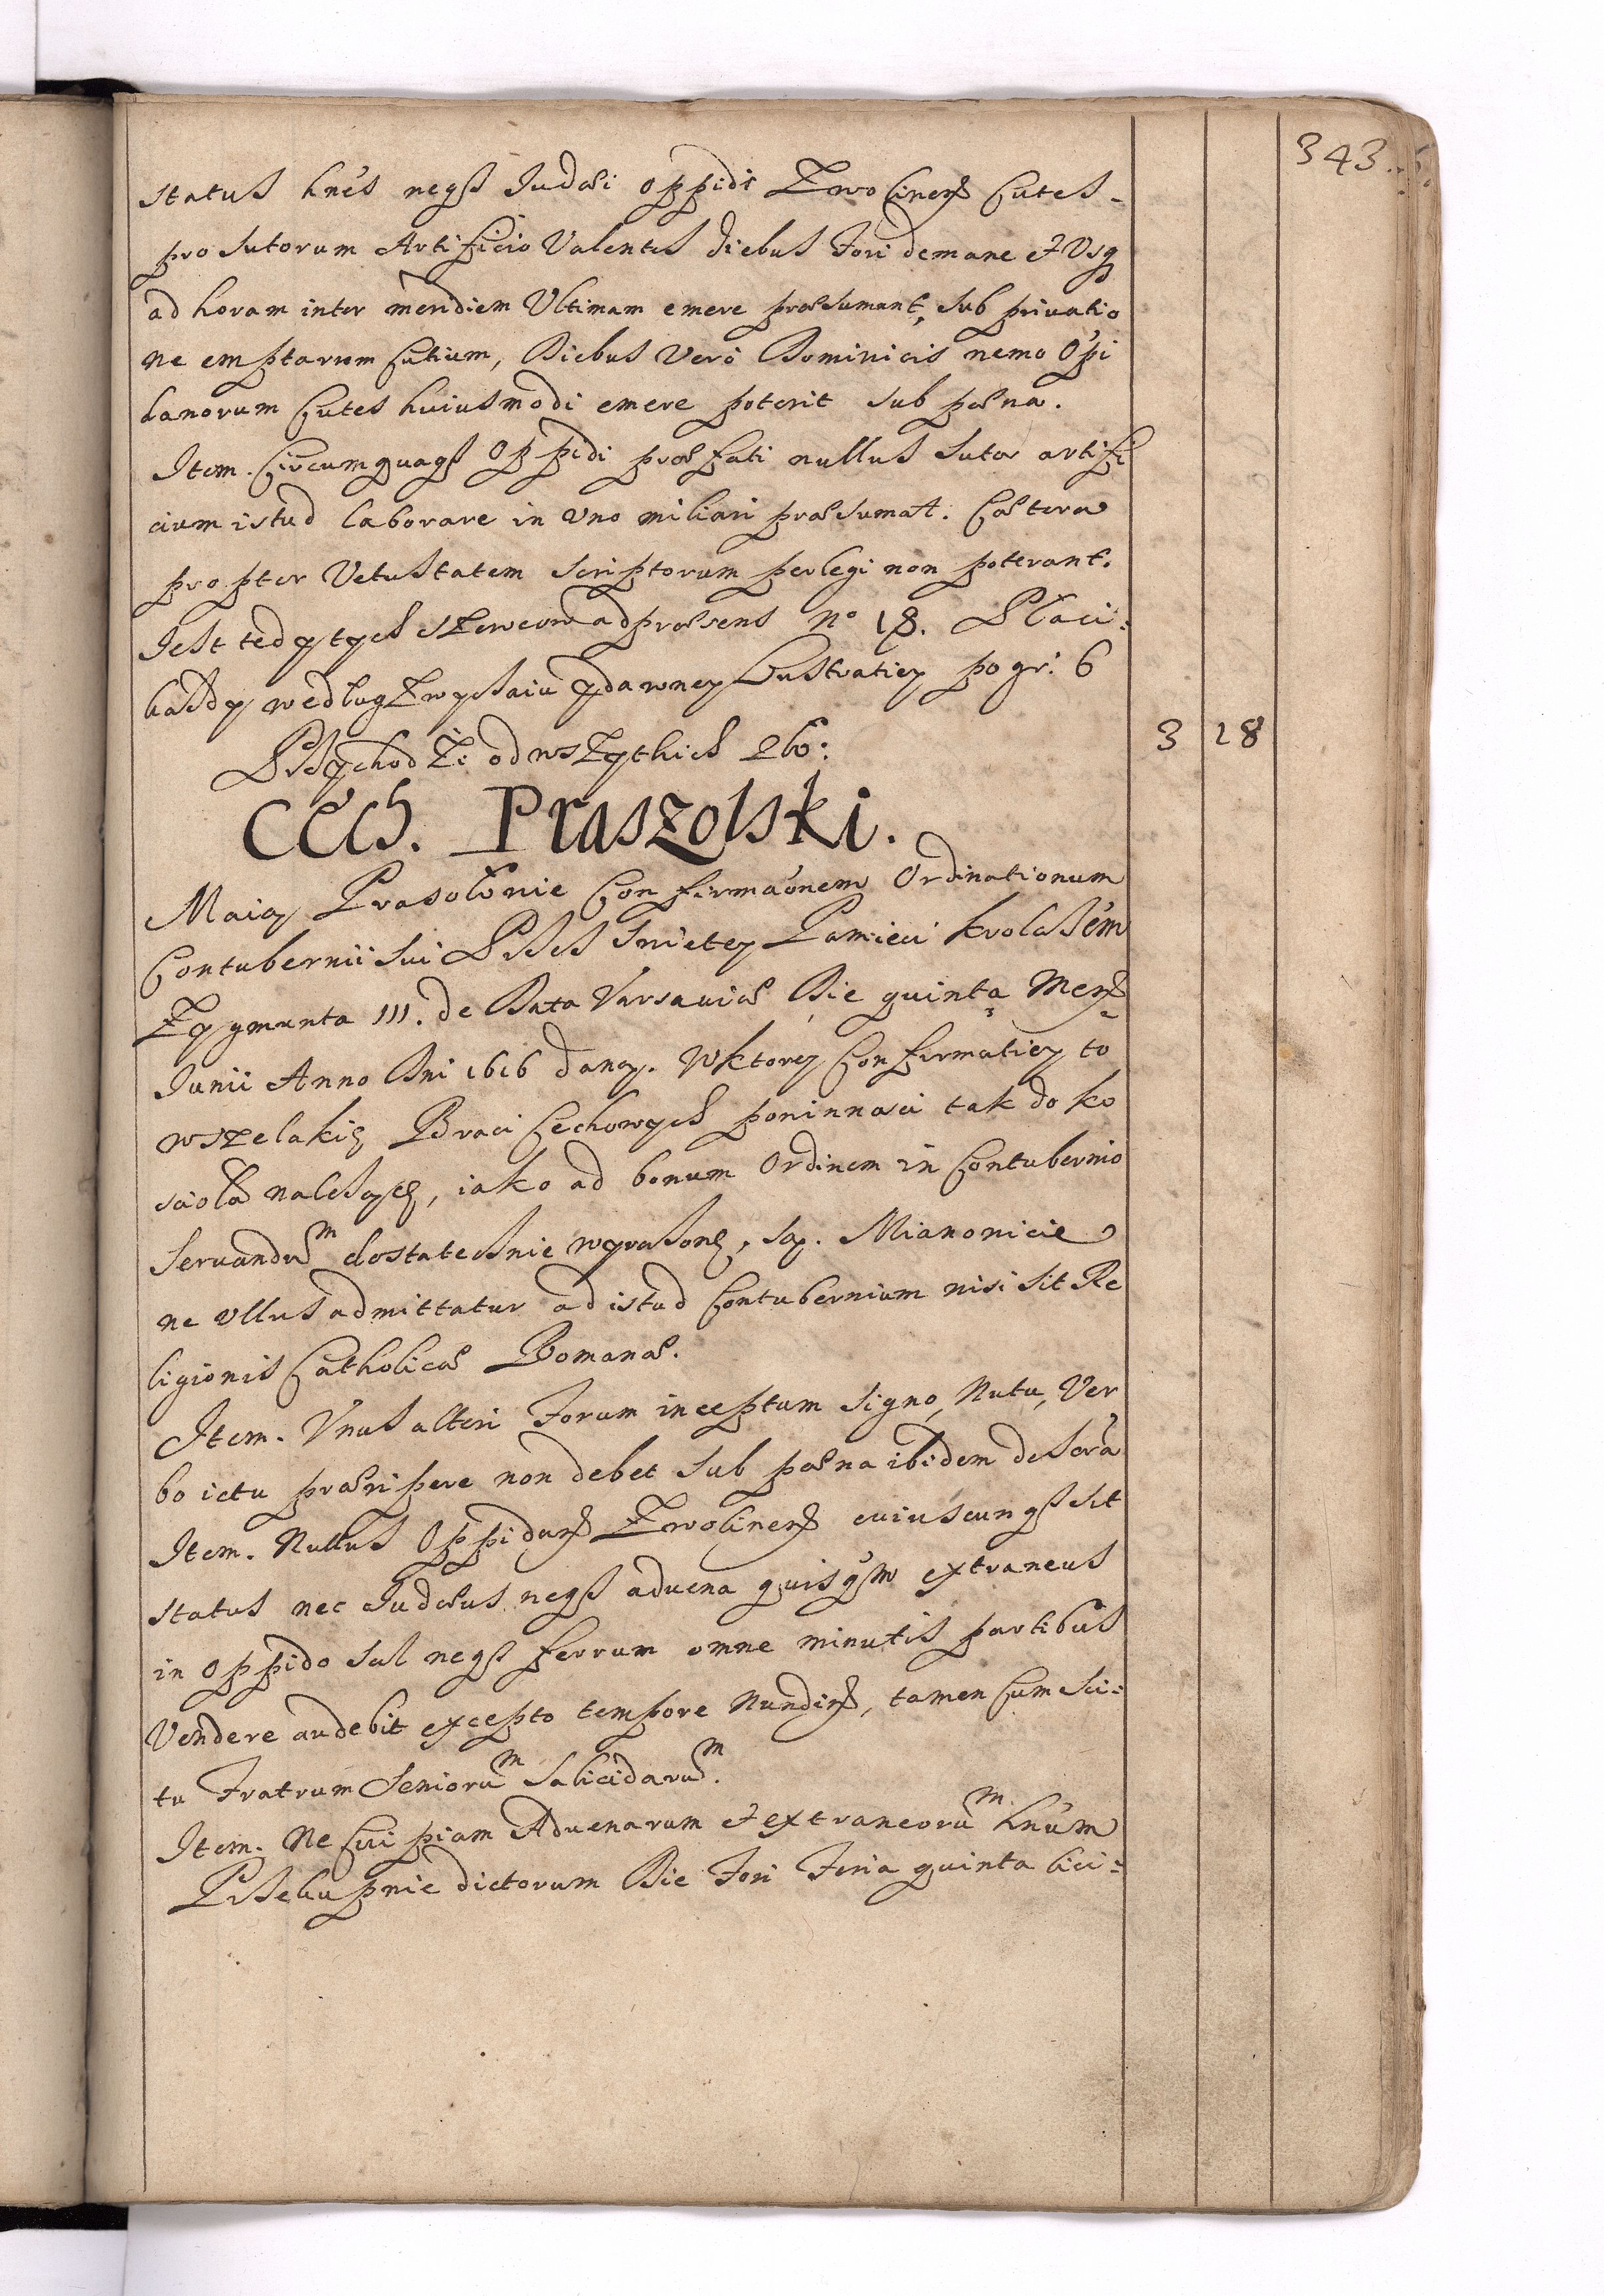 343
status hnẽs neqȝ Judæi Oppidi Zwolineñ Cutes
pro Sutorum Artificio Valentes diebus Fori de mane et Vsq
ad horam inter meridiem Ultimam emere præsumant, sub priuatio
ne emptarum Cutium, Diebus Vero Dominicis nemo Opi
danorum Cutes huiusmodi emere poterit sub pæna.
Item. Circumquaqȝ Oppidi præfati nullus Sutor artifi
cium istud laborare in Vno miliari præsumat. Cætera
propter Vetustatem scriptorum perlegi non poterant.
Jest tedy tych szewcow ad præsens No 18. Płaci
kazdy według zwyczaiu y dawney Lustratiey po gr. 6
Przychodzi od wszytkich zło: 3 18
Cech. Praszolski.
Maią Prasołowie Confirmaõnem Ordinationum
Contubernii sui Przes Swietey Pamieci Krola JEm
Zygmunta III. de Data Varsauiæ Die quinta Meñs
Junii Anno Dni 1616 daną. W ktorey Confirmatiey to
wszelakie Braci Cechowych powinnosci tak do ko
scioła nalezące, iako ad bonum Ordinem in Contubernio
seruandum dostatecznie wyrazone, są. Mianowicie
ne ullus admittatur ad istud Contubernium nisi sit Re
ligionis Catholicæ Romanæ.
Item. Vnus alteri Forum inceptum signo, Nutu, Ver
bo ictu præripere non debet sub pæna ibidem de Cera
Item. Nullus Oppidañs Zwolineñs cuiuscunqȝ sit
status nec Judæus neqȝ aduena quisqm extraneus
in Oppido sal neqȝ ferrum omne minutis partibus
Vendere audebit excepto tempore Nundiñs, tamen Cum Sci:
tu Fratrum Seniorum Salicidarum.
Item. Ne Cuipiam Aduenarum et extraneorum hnũm
Przekupnie dictorum Die Fori Feria quinta lici: